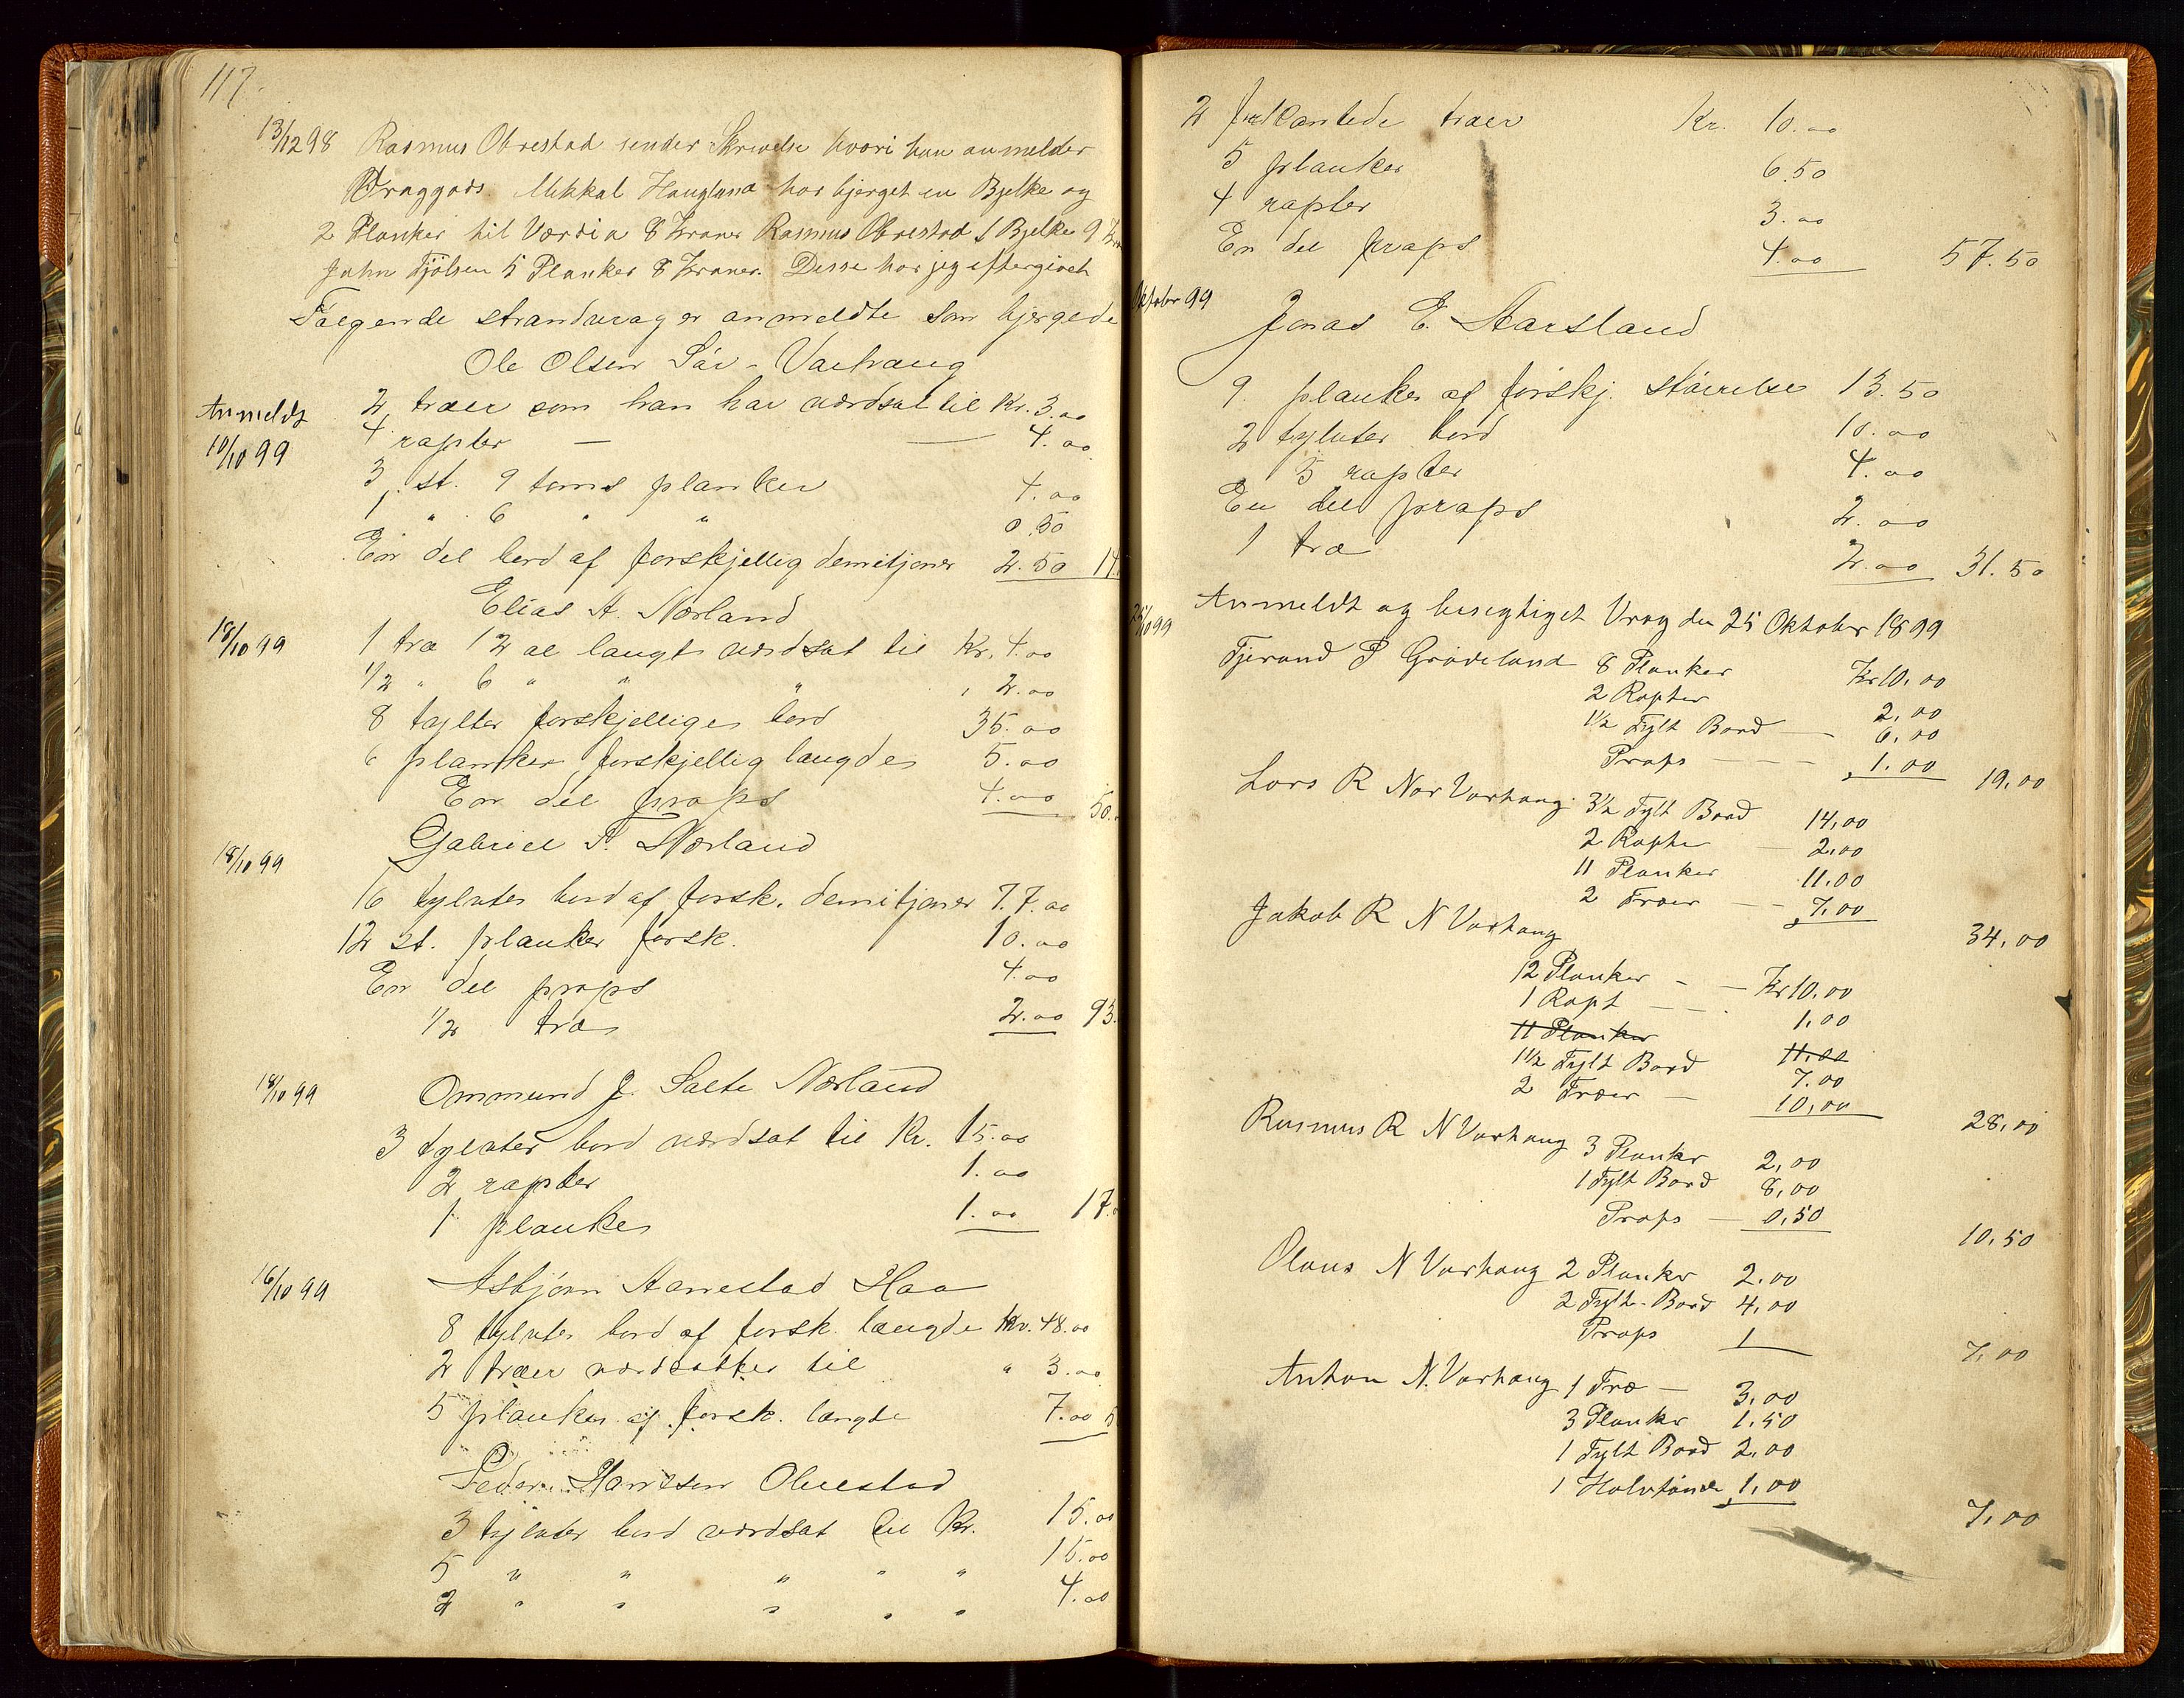 117.
13/12 98 Rasmus Obrestad sender Skrivelse hvori han anmelder
Vraggods. Mikkal Haugland har bjerget en Bjelke og
2 Planker til Værdi a 8 Kroner Rasmus Obrestad 1 Bjelke 9 Kr
John Tjölsen 5 Planker 8 Kroner. Disse har jeg eftergivet
Følgende strandvrag er anmeldte som bjergede
Ole Olsen Sör-Varhaug
Anmeldt 10/10 99
2 træer som han har værdsat til Kr. 3.00
4 rapter — — 4.00
3 st. 9 toms planker 4.00
1 " 6 " " 0.50
En del bord af forskjellig demitjoner 2.50 14
Elias A. Nærland
18/10 99 1 træ 12 al langt værdsat til Kr. 4.00
1/2 " 6 " " " , 2.00
8 tylter forskjellige bord 35.00
6 planker forskjellig længde 5.00
En del props 4.00 50.
Gabriel P. Nærland
18/10 99
16 tylvter bord af forsk. demitjoner 77.00
12 st. planker forsk. 10.00
En del props 4.00
1/2 træ 2.00 93.
18/10 99 Ommund J. Salte Nærland
3 tylvter bord værdsat til Kr. 15.00
2 rapter 1.00
1 planke 1.00 17.
16/10 99 Asbjörn Aanestad Haa
8 tylvter bord af forsk. længde Kr. 48.00
2 træer værdsatte til " 3.00
5 planker af forsk. længde 7.00 5
Peder Hansen Obrestad
3 tylvter bord værdsat til Kr. 15.00
5 " " " " " 15.00
2 " " " " " 4.00
2 firkantede træer Kr. 10.00
5 planker 6.50
4 rapter 3.00
En del props 4.00 57.50
Oktober 99 Jonas E. Aarsland
9 planker af forskj. större​lse 13.50
2 tylvter bord 10.00
5 rapter 4.00
En del props 2.00
1 træ 2.00 31.50
25/10 99 Anmeldt og besigtiget Vrag den 25 Oktober 1899
Tjerand P Grödeland 8 Planker Kr 10,00
2 Rapter 2,00
1 1/2 Tylt Bord — 6,00
Props - - - 1.00 19,00
Lars R Nor Varhaug. 3 1/2 Tylt Bord 14,00
2 Rapter — 2,00
11 Planker 11.00
2 Træer — 7,00
34,00
Jakob R N Varhaug
12 Planker - — Kr 10.00
1 Rapt — - 1,00
11 Planker 11,00
1 1/2 Tylt Bord 7.00
2 Træer — 10,00
28,00
Rasmus R N Varhaug 3 Planker 2,00
1 Tylt Bord 8,00
Props — 0,50
10,50
Olaus N Varhaug 2 Planker 2.00
2 Tylt. Bord 4,00
Props 1
7,00
Anton N. Varhaug 1 Træ — 3,00
3 Planker 1.50
1 Tylt Bord 2,00
1 Halvtönde 1,00
7,00